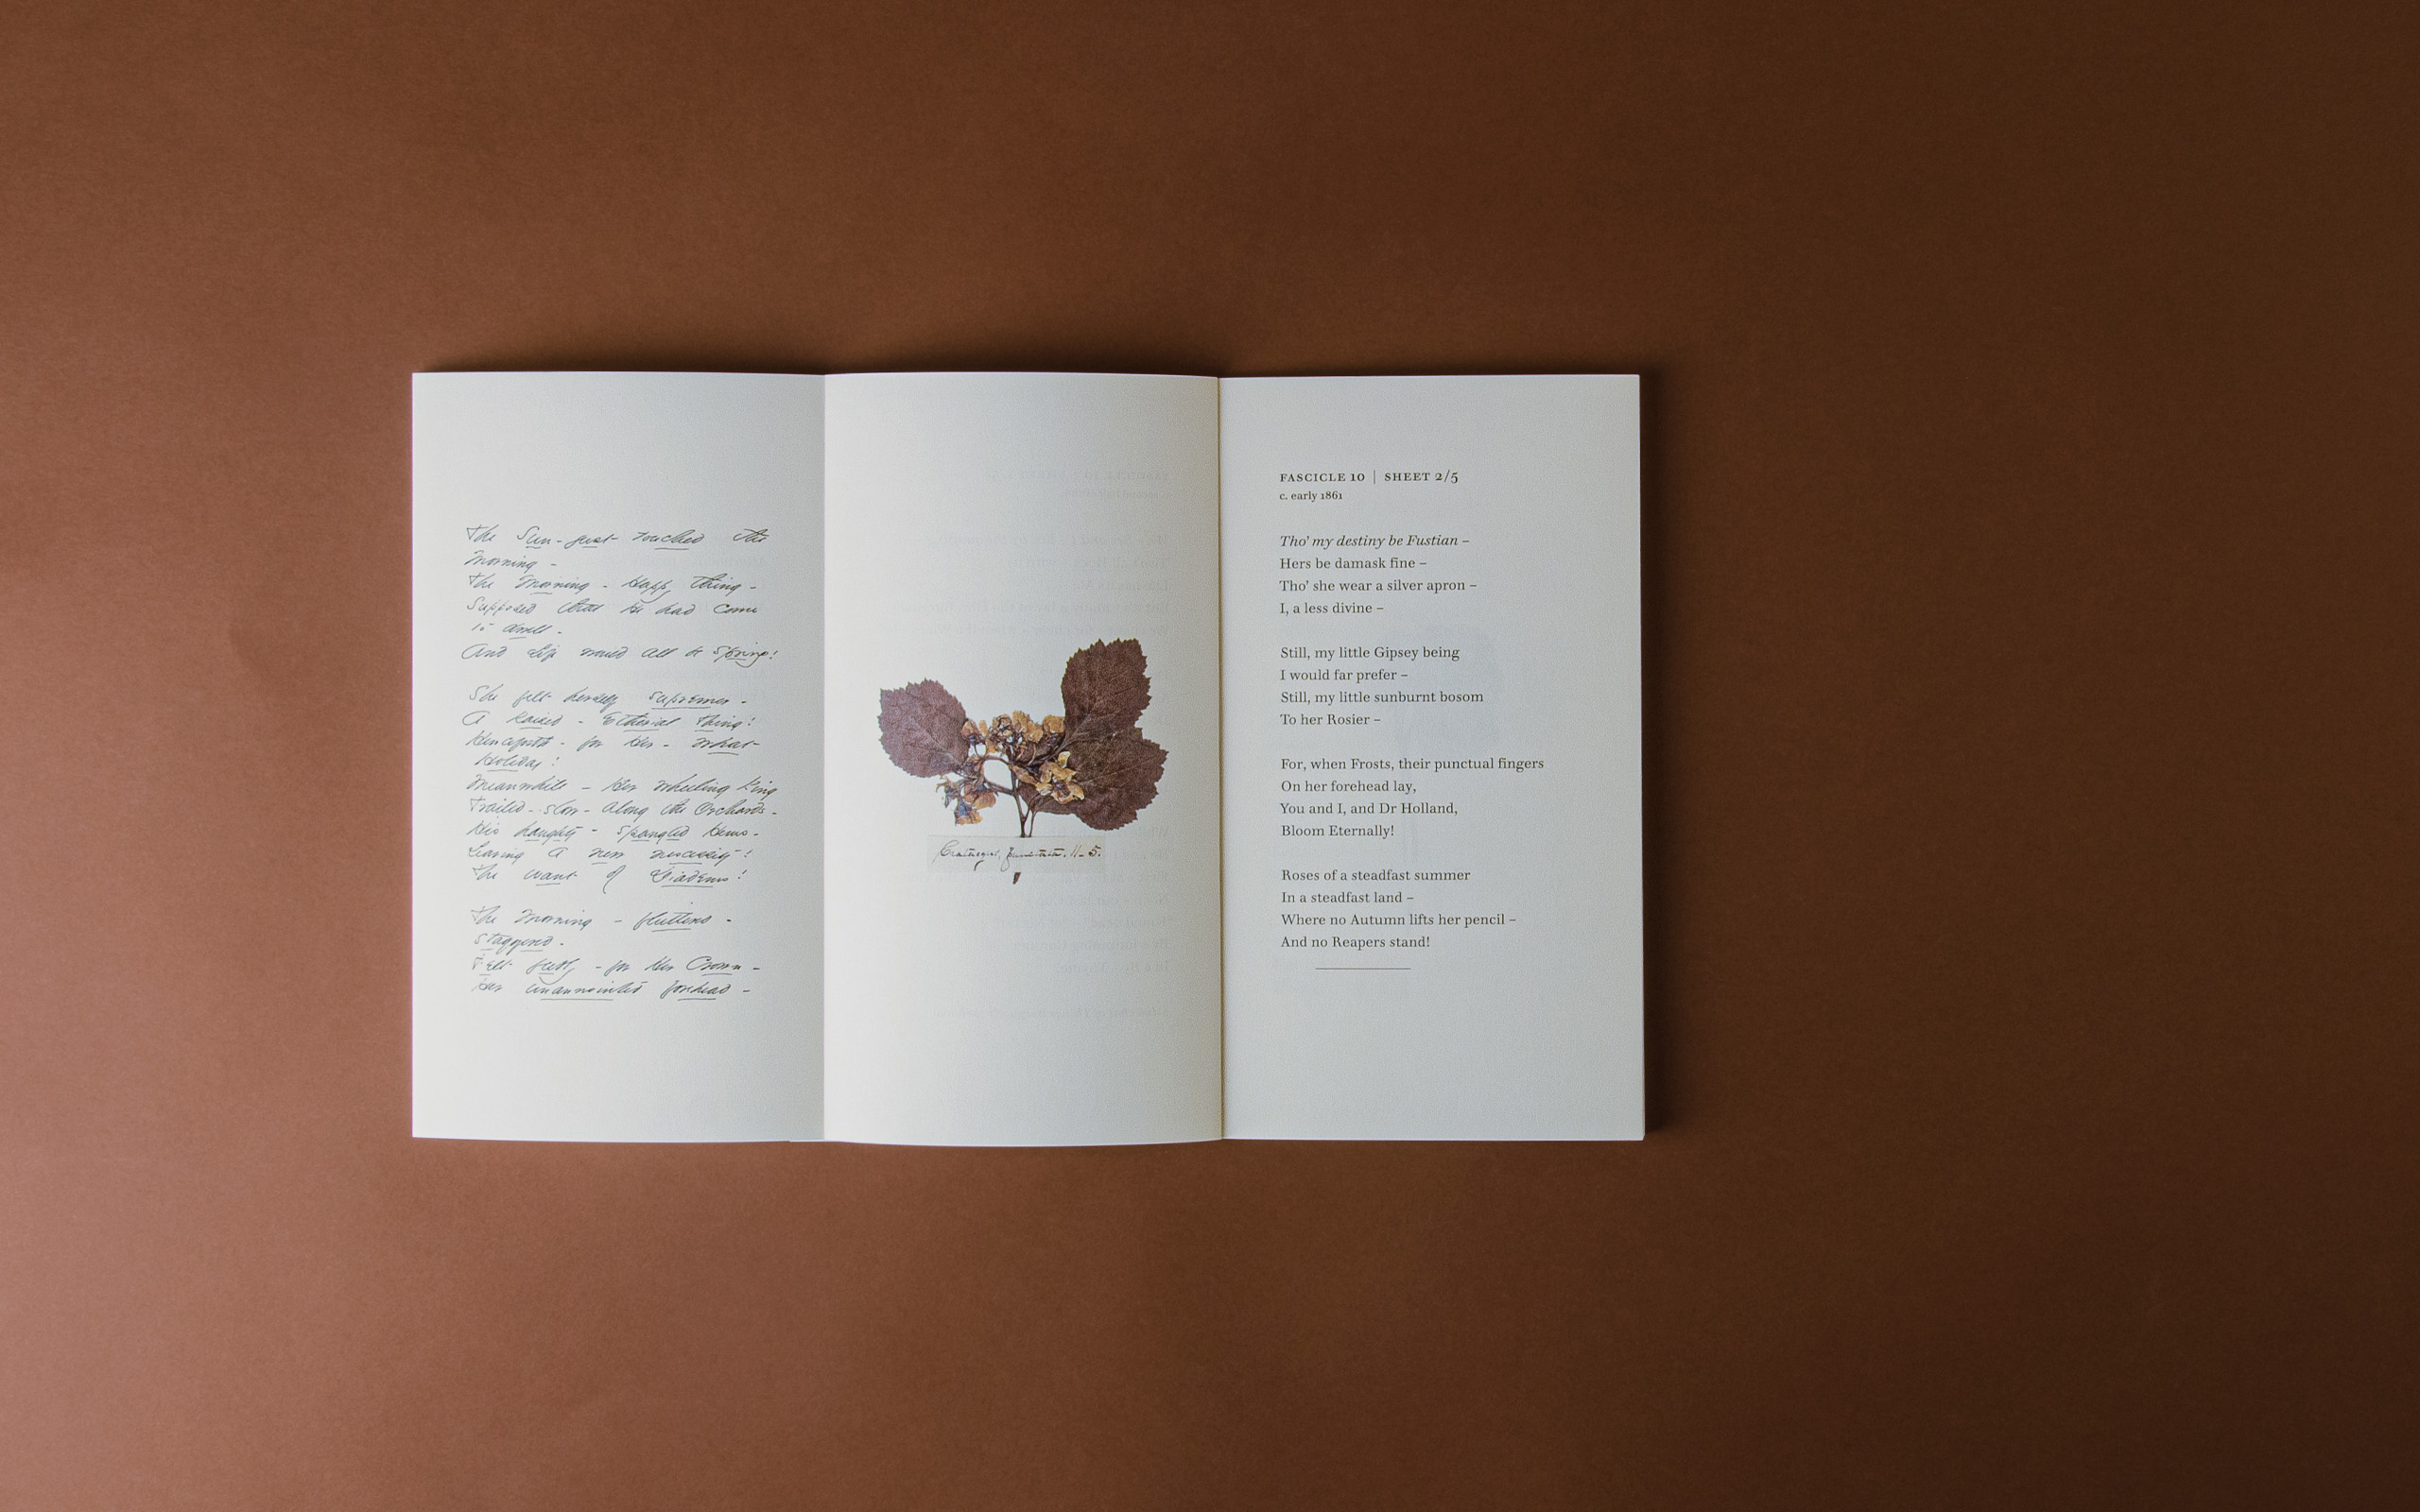 The Sun - just touched the
Morning -
The Morning - Happy thing -
Supposed that He had come
to dwell -
And Life would all be Spring!
She felt herself supremer -
A Raised - Etherial Thing!
Henceforth - for Her - What
Holiday!
Meanwhile - Her wheeling King
Trailed - slow - along the Orchards -
His haughty - spangled Hems -
Leaving a new necessity!
The want of Diadems!
The Morning - fluttered -
staggered -
Felt feebly - for Her Crown -
Her unannointed forehead -
Crataegus, 11-5.
FASCICLE 10 | SHEET 2/5
c. early 1861
Tho' my destiny be Fustian –
Hers be damask fine –
Tho' she wear a silver apron –
I, a less divine –
Still, my little Gipsey being
I would far prefer –
Still, my little sunburnt bosom
To her Rosier –
For, when Frosts, their punctual fingers
On her forehead lay,
You and I, and Dr Holland,
Bloom Eternally!
Roses of a steadfast summer
In a steadfast land –
Where no Autumn lifts her pencil –
And no Reapers stand!